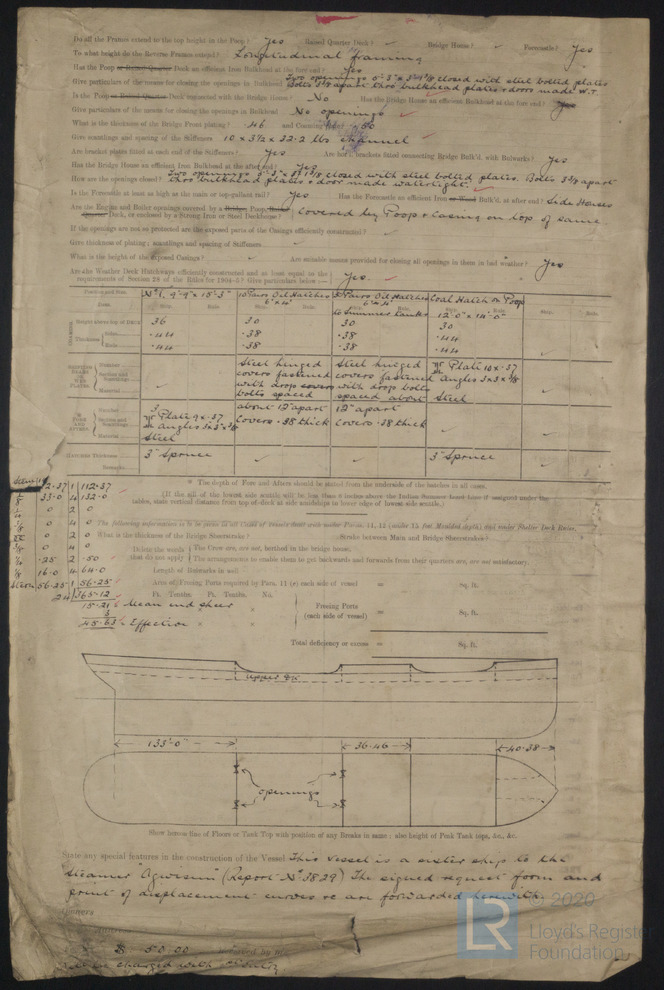 Do all the Frames extend to the top height in the Poop? Yes Raised Quarter Deck? Bridge House? Forecastle? Yes
To what height do the Reverse Frames extend? Longitudinal Framing
Has the Poop or Raised Quarter Deck an efficient Iron Bulkhead at the fore end? Yes
Give particulars of the means for closing the openings in Bulkhead Two openings closed with steel bolted plates
Bolts apart thro bulkhead plates & doors made W.T.
Is the Poop or Raised Quarter Deck connected with the Bridge House? No Has the Bridge House an efficient Bulkhead at the fore end? Yes
Give particulars of the means for closing the openings in Bulkhead No openings
What is the thickness of the Bridge Front plating? .46 and Coaming plate? .50
Give scantlings and spacing of the Stiffeners 10 x 3½ x 32.2 lbs channel
Are bracket plates fitted at each end of the Stiffeners? Yes Are horl. brackets fitted connecting Bridge Bulk'd. with Bulwarks? Yes
Has the Bridge House an efficient Iron Bulkhead at the after end? Yes
How are the openings closed? Two openings closed with steel bolted plates. Bolts 3⅜ apart
Thro bulkhead plates & door made watertight.
Is the Forecastle at least as high as the main or top-gallant rail? Yes Has the Forecastle an efficient Iron or Wood Bulk'd, at after end? Side Houses
Are the Engine and Boiler openings covered by a Bridge, Poop, Raised
Quarter Deck, or enclosed by a Strong Iron or Steel Deckhouse? Covered by Poop & Casing on top of same
If the openings are not so protected are the exposed parts of the Casings efficiently constructed?
Give thickness of plating; scantlings and spacing of Stiffeners
What is the height of the exposed Casings? Are suitable means provided for closing all openings in them in bad weather? Yes
Are the Weather Deck Hatchways efficiently constructed and at least equal to the
requirements of Section 28 of the Rules for 1904-5? Give particulars below:— Yes
Nº 1. 9'-9" x 18'-3" Oil Hatches Oil Hatches Coal Hatch on Poop
6' x 4' 6' x 4'
Item. Ship. Rule. Ship. Rule. to Summer tanks 12'-0" x 14'-0" Ship. Rule.
Height above top of DECK 36 30 30 30
Thickness Sides .44 .38 .38 .44
Ends .44 .38 .38 .44
Number Steel hinged Steel hinged
Section and Scantlings covers fastened covers fastened Angles 3 x 3 x ⅜
with drop covers with drop bolts
Material bolts spaced spaced about Steel
FORE AND AFTERS Number 3 about 12" apart 12" apart
Section and Scantlings Plate 9 x .37 Covers .38 thick Covers .38 thick
Angles 3 x 3 x ⅜
Material Steel
HATCHES Thickness 3" Spruce 3" Spruce
Remarks
* The depth of Fore and Afters should be stated from the underside of the beaches in all cases.
(If the sill of the lowest side scuttle will be less than 6 inches above the Indian Summer load-line if assigned under the
tables, state vertical distance from top of deck in side soundings to lower edge of lowest side scuttle.)
112.37 1 112.37
⅛ 33.0 4 132.0
¼ 0 2 0
⅛ 0 4 0
0 2 0
⅛ 0 4 0
¼ .25 2 .50
⅛ 16.0 4 64.0
Stern 56.25 1 56.25
24 365.12
15.21 Mean ind sheer
3
45.63 Effective
The following information is to be given in all Cases of Vessels built with under Paras. 11, 12 (under 15 feet Moulded depth) and under Shelter Deck Rules.
What is the thickness of the Bridge Sheerstrake? Strake between Main and Bridge Sheerstrakes?
Delete the words that do not apply The Crew are, are not, berthed in the bridge house.
The arrangements to enable them to get backwards and forwards from their quarters are, are not satisfactory.
Length of Bulwarks in well
Area of Freeing Ports required by Para. 11 (e) each side of vessel = Sq. ft.
Ft. Tenths. Ft. Tenths. No.
Freeing Ports
(each side of vessel) = Sq. ft.
Total deficiency or excess = Sq. ft.
Upper Dk
133'-0" 36.46 40.38
openings
Show herein line of Floors or Tank Top with position of any Breaks in same: also height of Peak Tank tops, &c., &c.
State any special features in the construction of the Vessel This vessel is a sister ship to the
Steamer "Agwisun" (Report Nº 3829) The signed request form and
print of displacement curves &c are forwarded herewith.
Owners
$ 50.00
to be charged with
© 2020
LR Lloyd's Register
Foundation